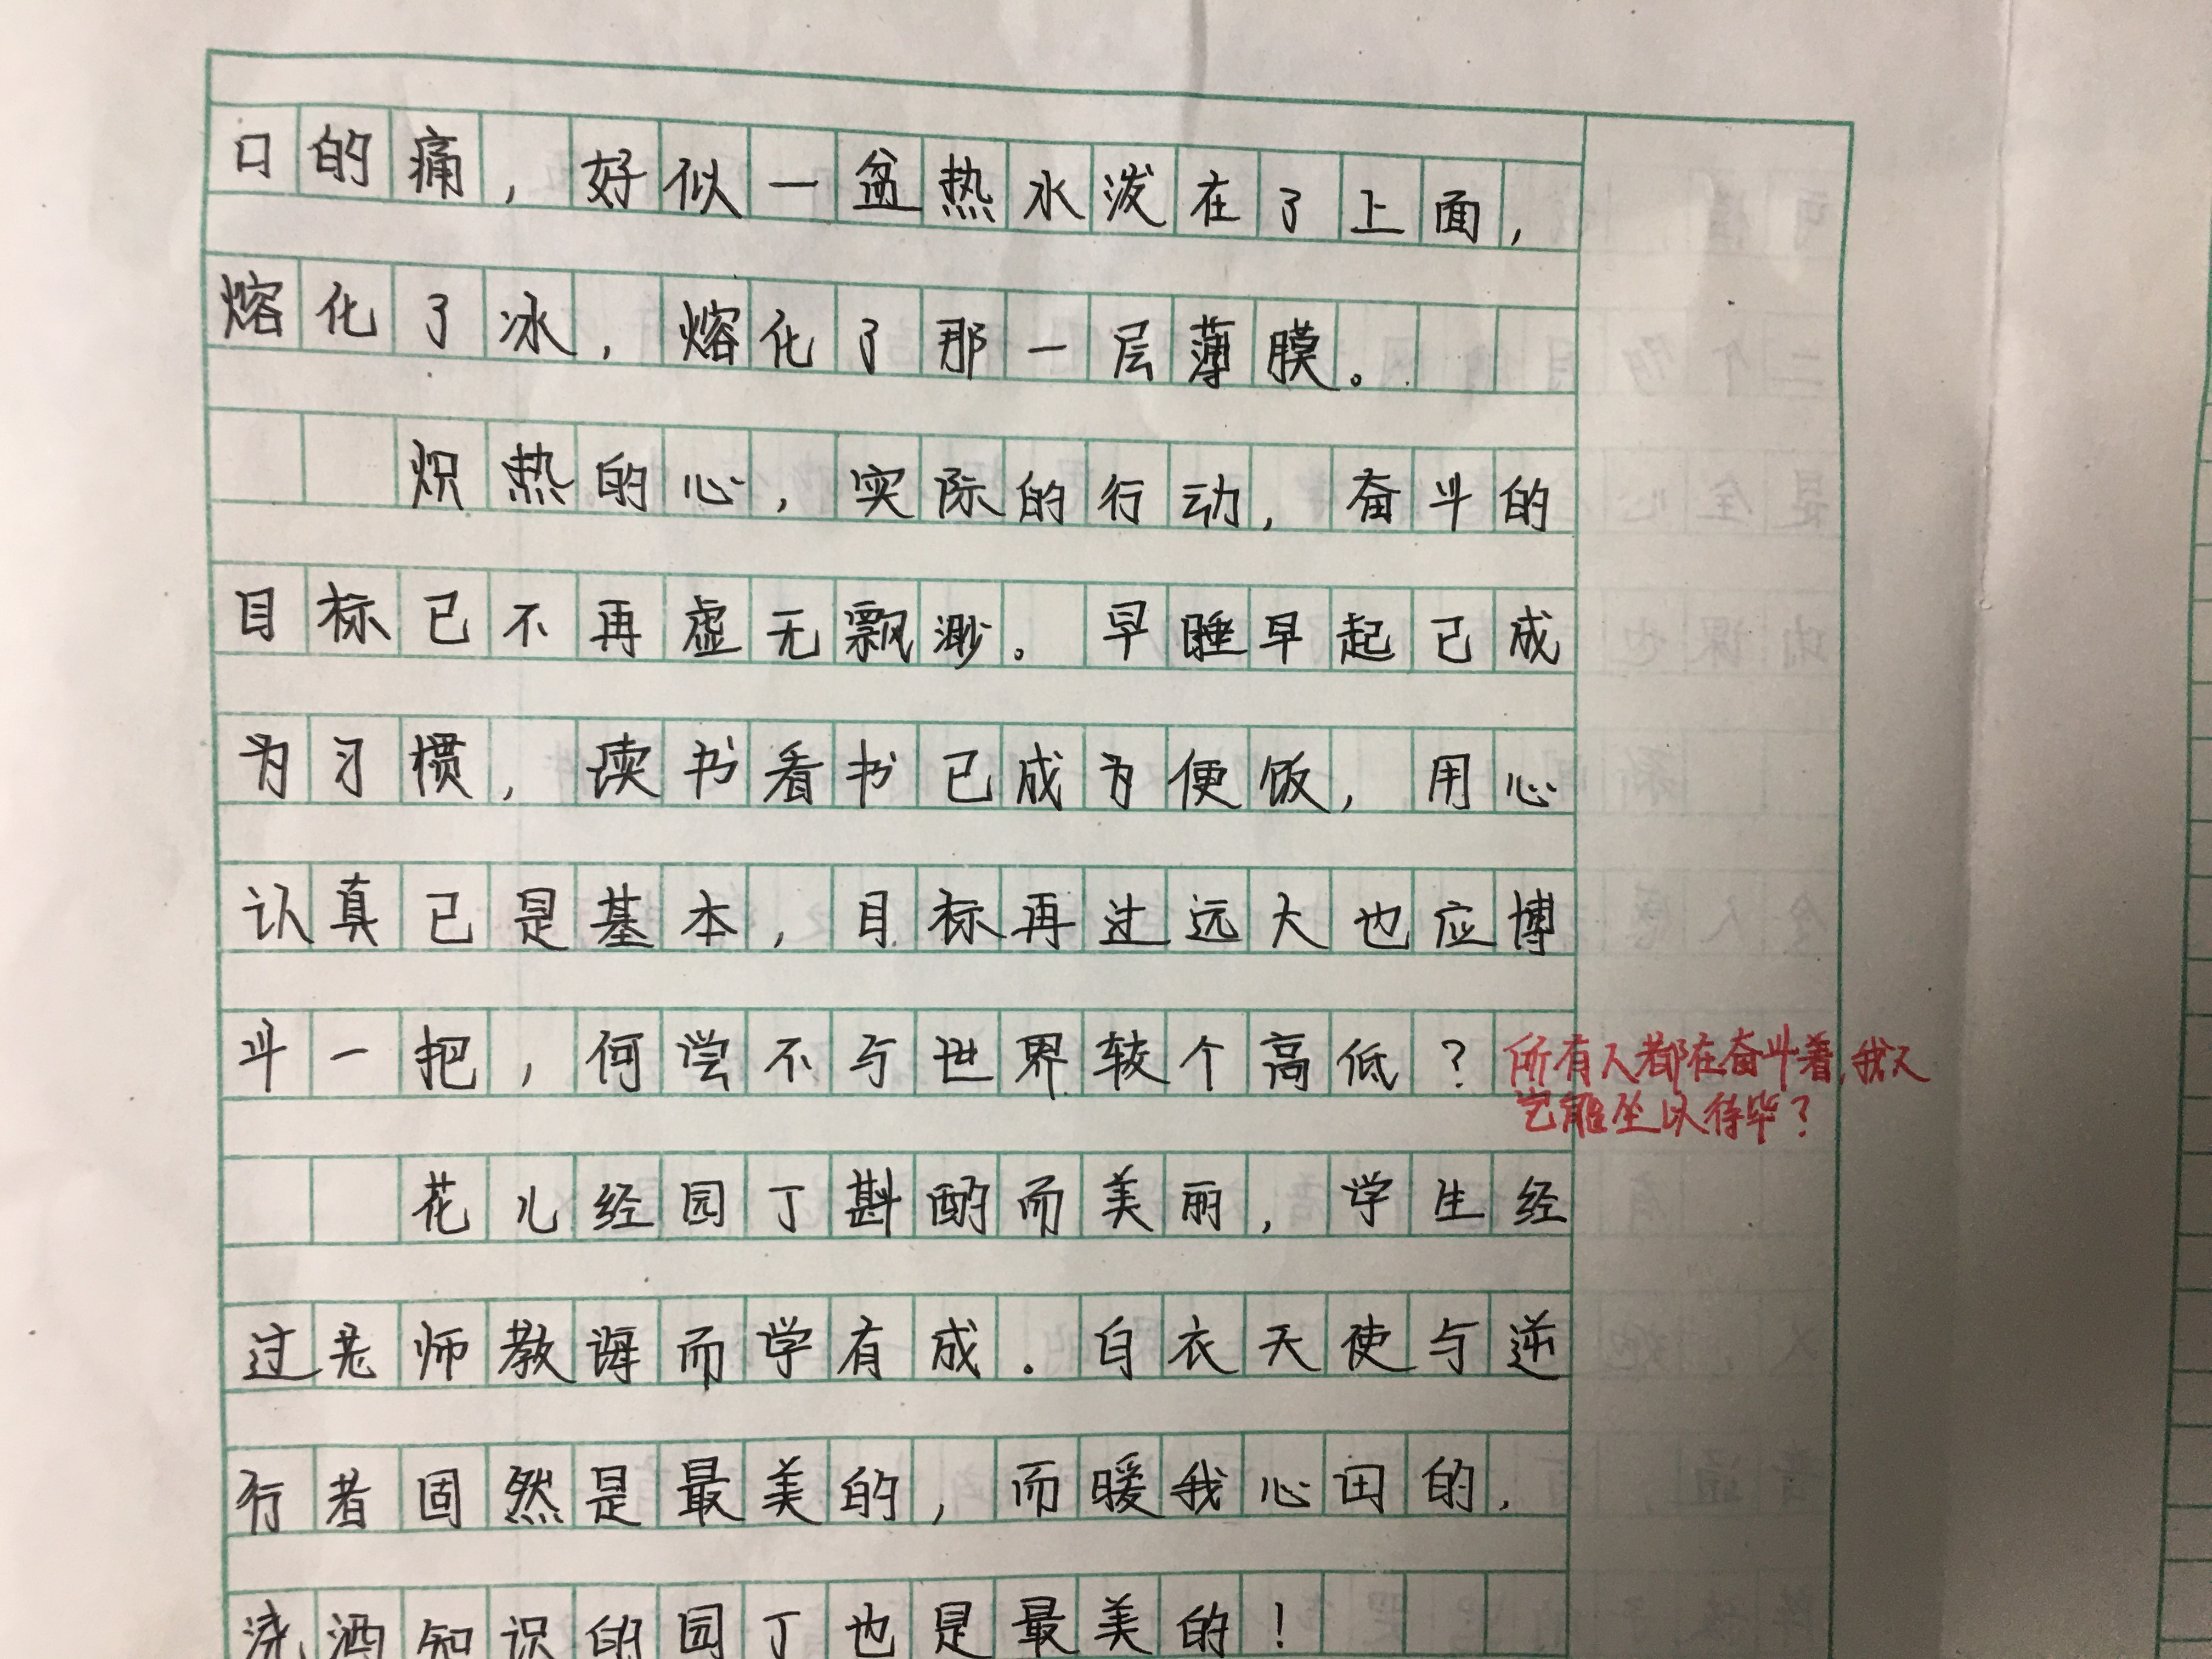 口的痛，好似一盆热水泼在了上面，
熔化了冰，熔化了那一层薄膜。
炽热的心，实际的行动，奋斗的
目标已不再虚无飘渺。早睡早起已成
为习惯，读书看书已成为便饭，用心
认真已是基本，目标再过远大也应博
斗一把，何尝不与世界较个高低？
所有人都在奋斗着，我又
岂能坐以待毕？
花儿经园丁斟酌而美丽，学生经
过老师教诲而学有成．白衣天使与逆
行者固然是最美的，而暖我心田的，
浇洒知识的园丁也是最美的！